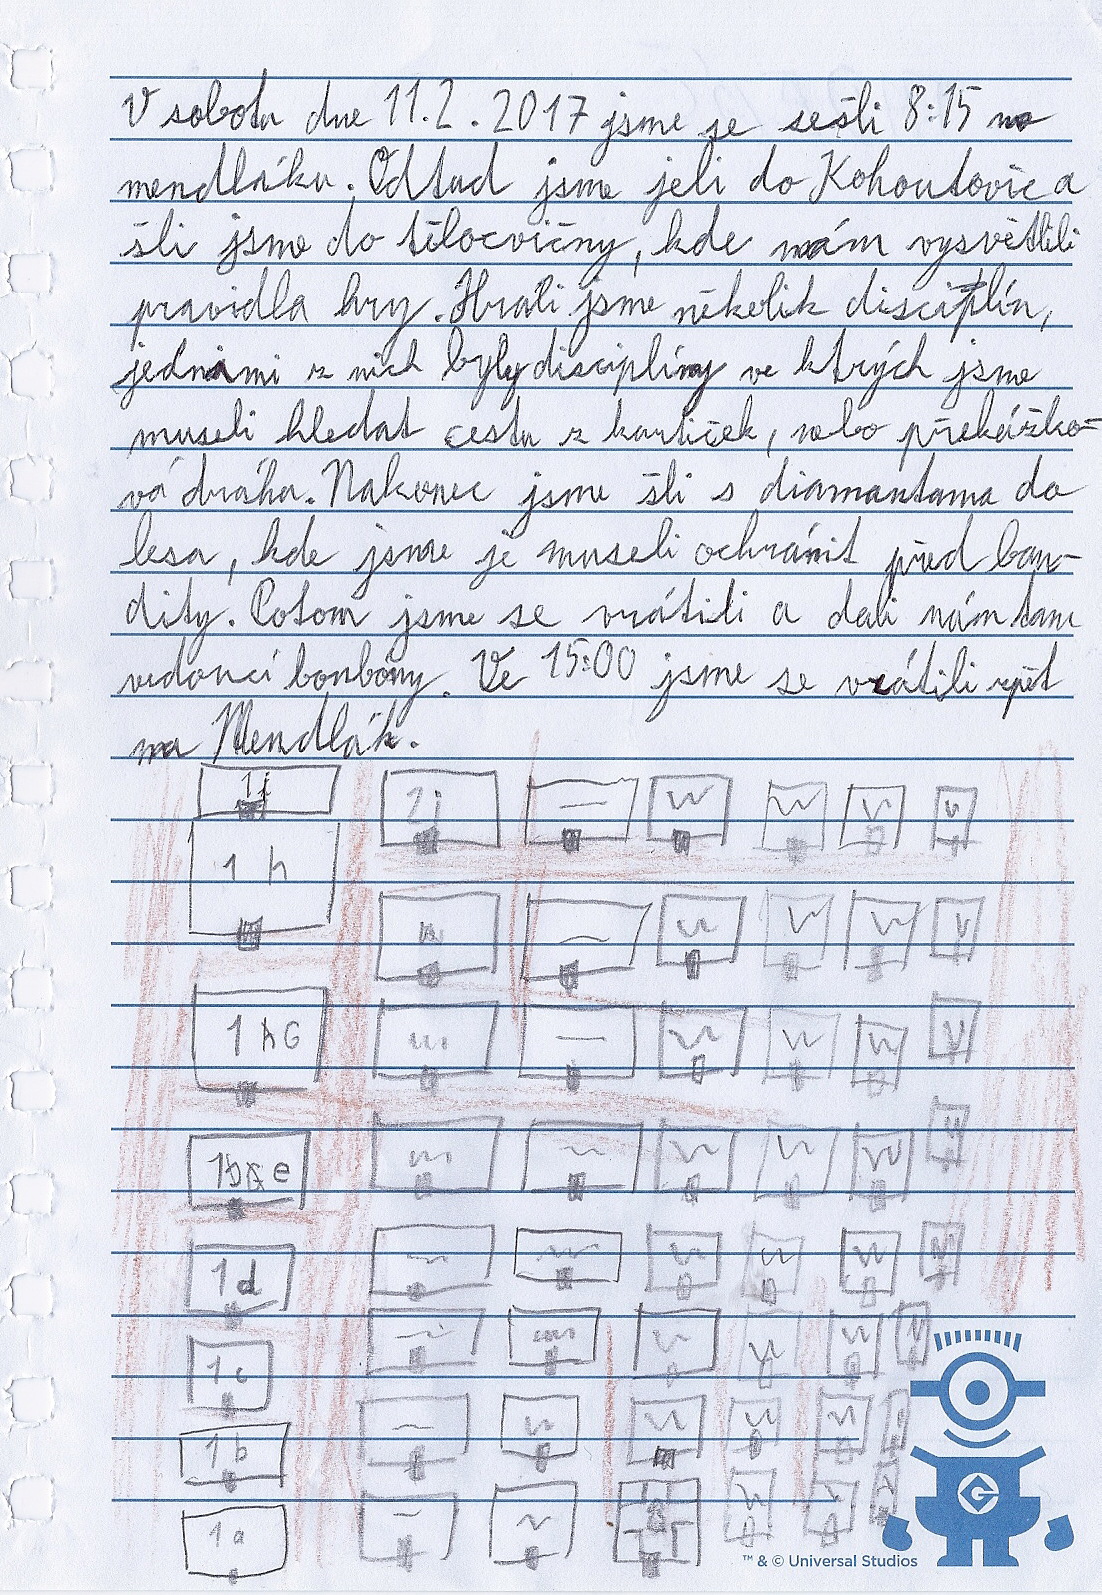 V sobotu dne 11.2. 2017 jsme se sešli 8:15 na
mendláku. Odtud jsme jeli do Kohoutovic a
šli jsme do tělocvičny, kde nám vysvětlili
pravidla hry. Hráli jsme několik disciplín,
jednimi z nich byly disciplíny ve ktrých jsme
museli hledat cestu z kartiček, nebo překážko-
vá dráha. Nakonec jsme šli s diamantama do
lesa, kde jsme je museli ochránit před ban-
dity. Potom jsme se vrátili a dali nám tam
vedoucí bonbóny. Ve 15:00 jsme se vrátili zpět
na Mendlák.
1j 1j
1 h
1d
1c
1b
1a
™ & © Universal Studios